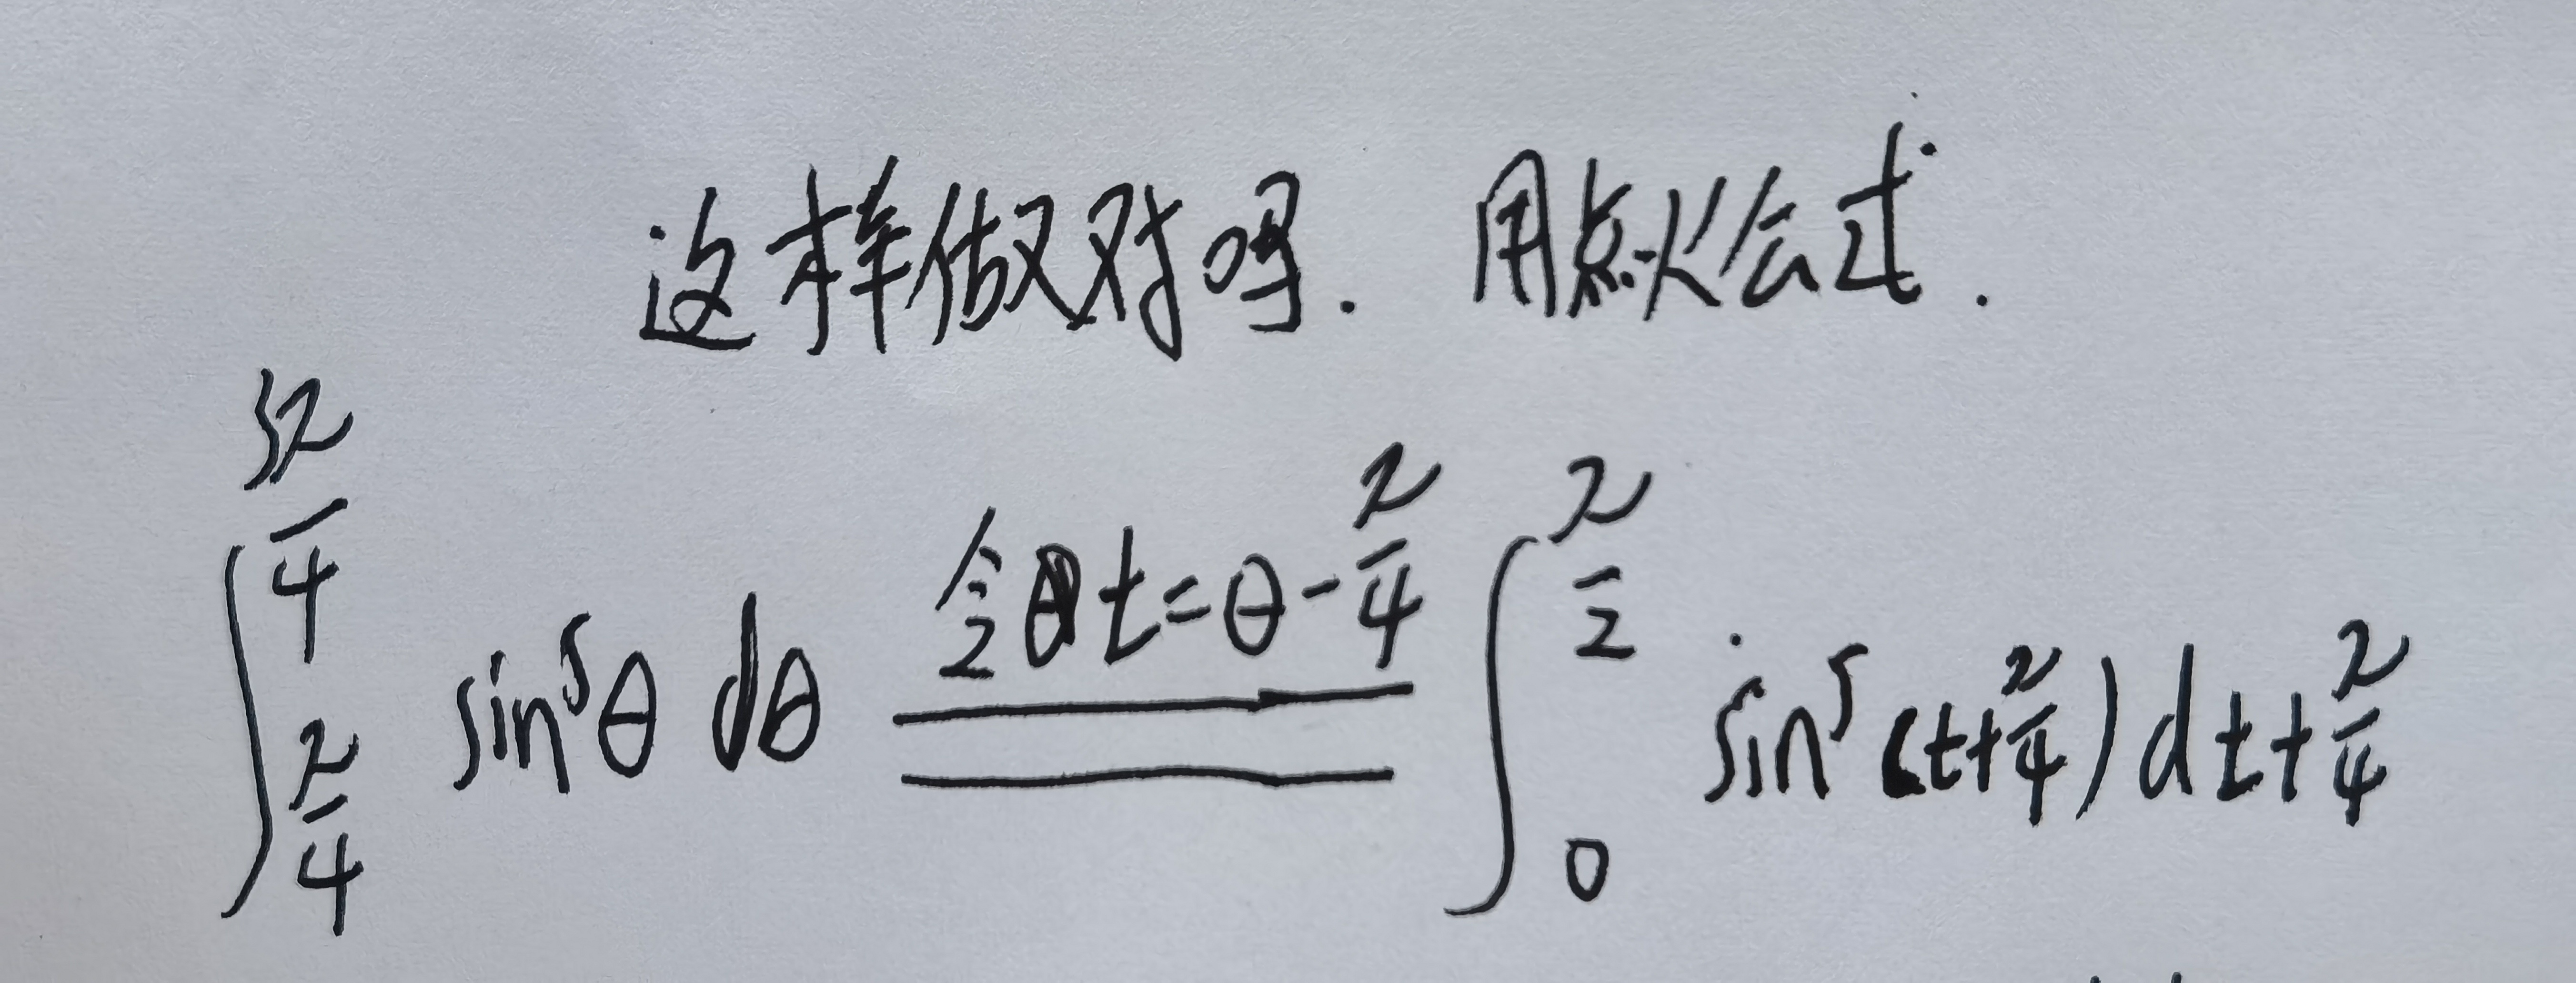 这样做对吗. 用点火公式.
∫_{π/4}^{3π/4} sin⁵θ dθ \xlongequal{令t=θ-π/4} ∫_0^{π/2} sin⁵(t+π/4)dt+π/4